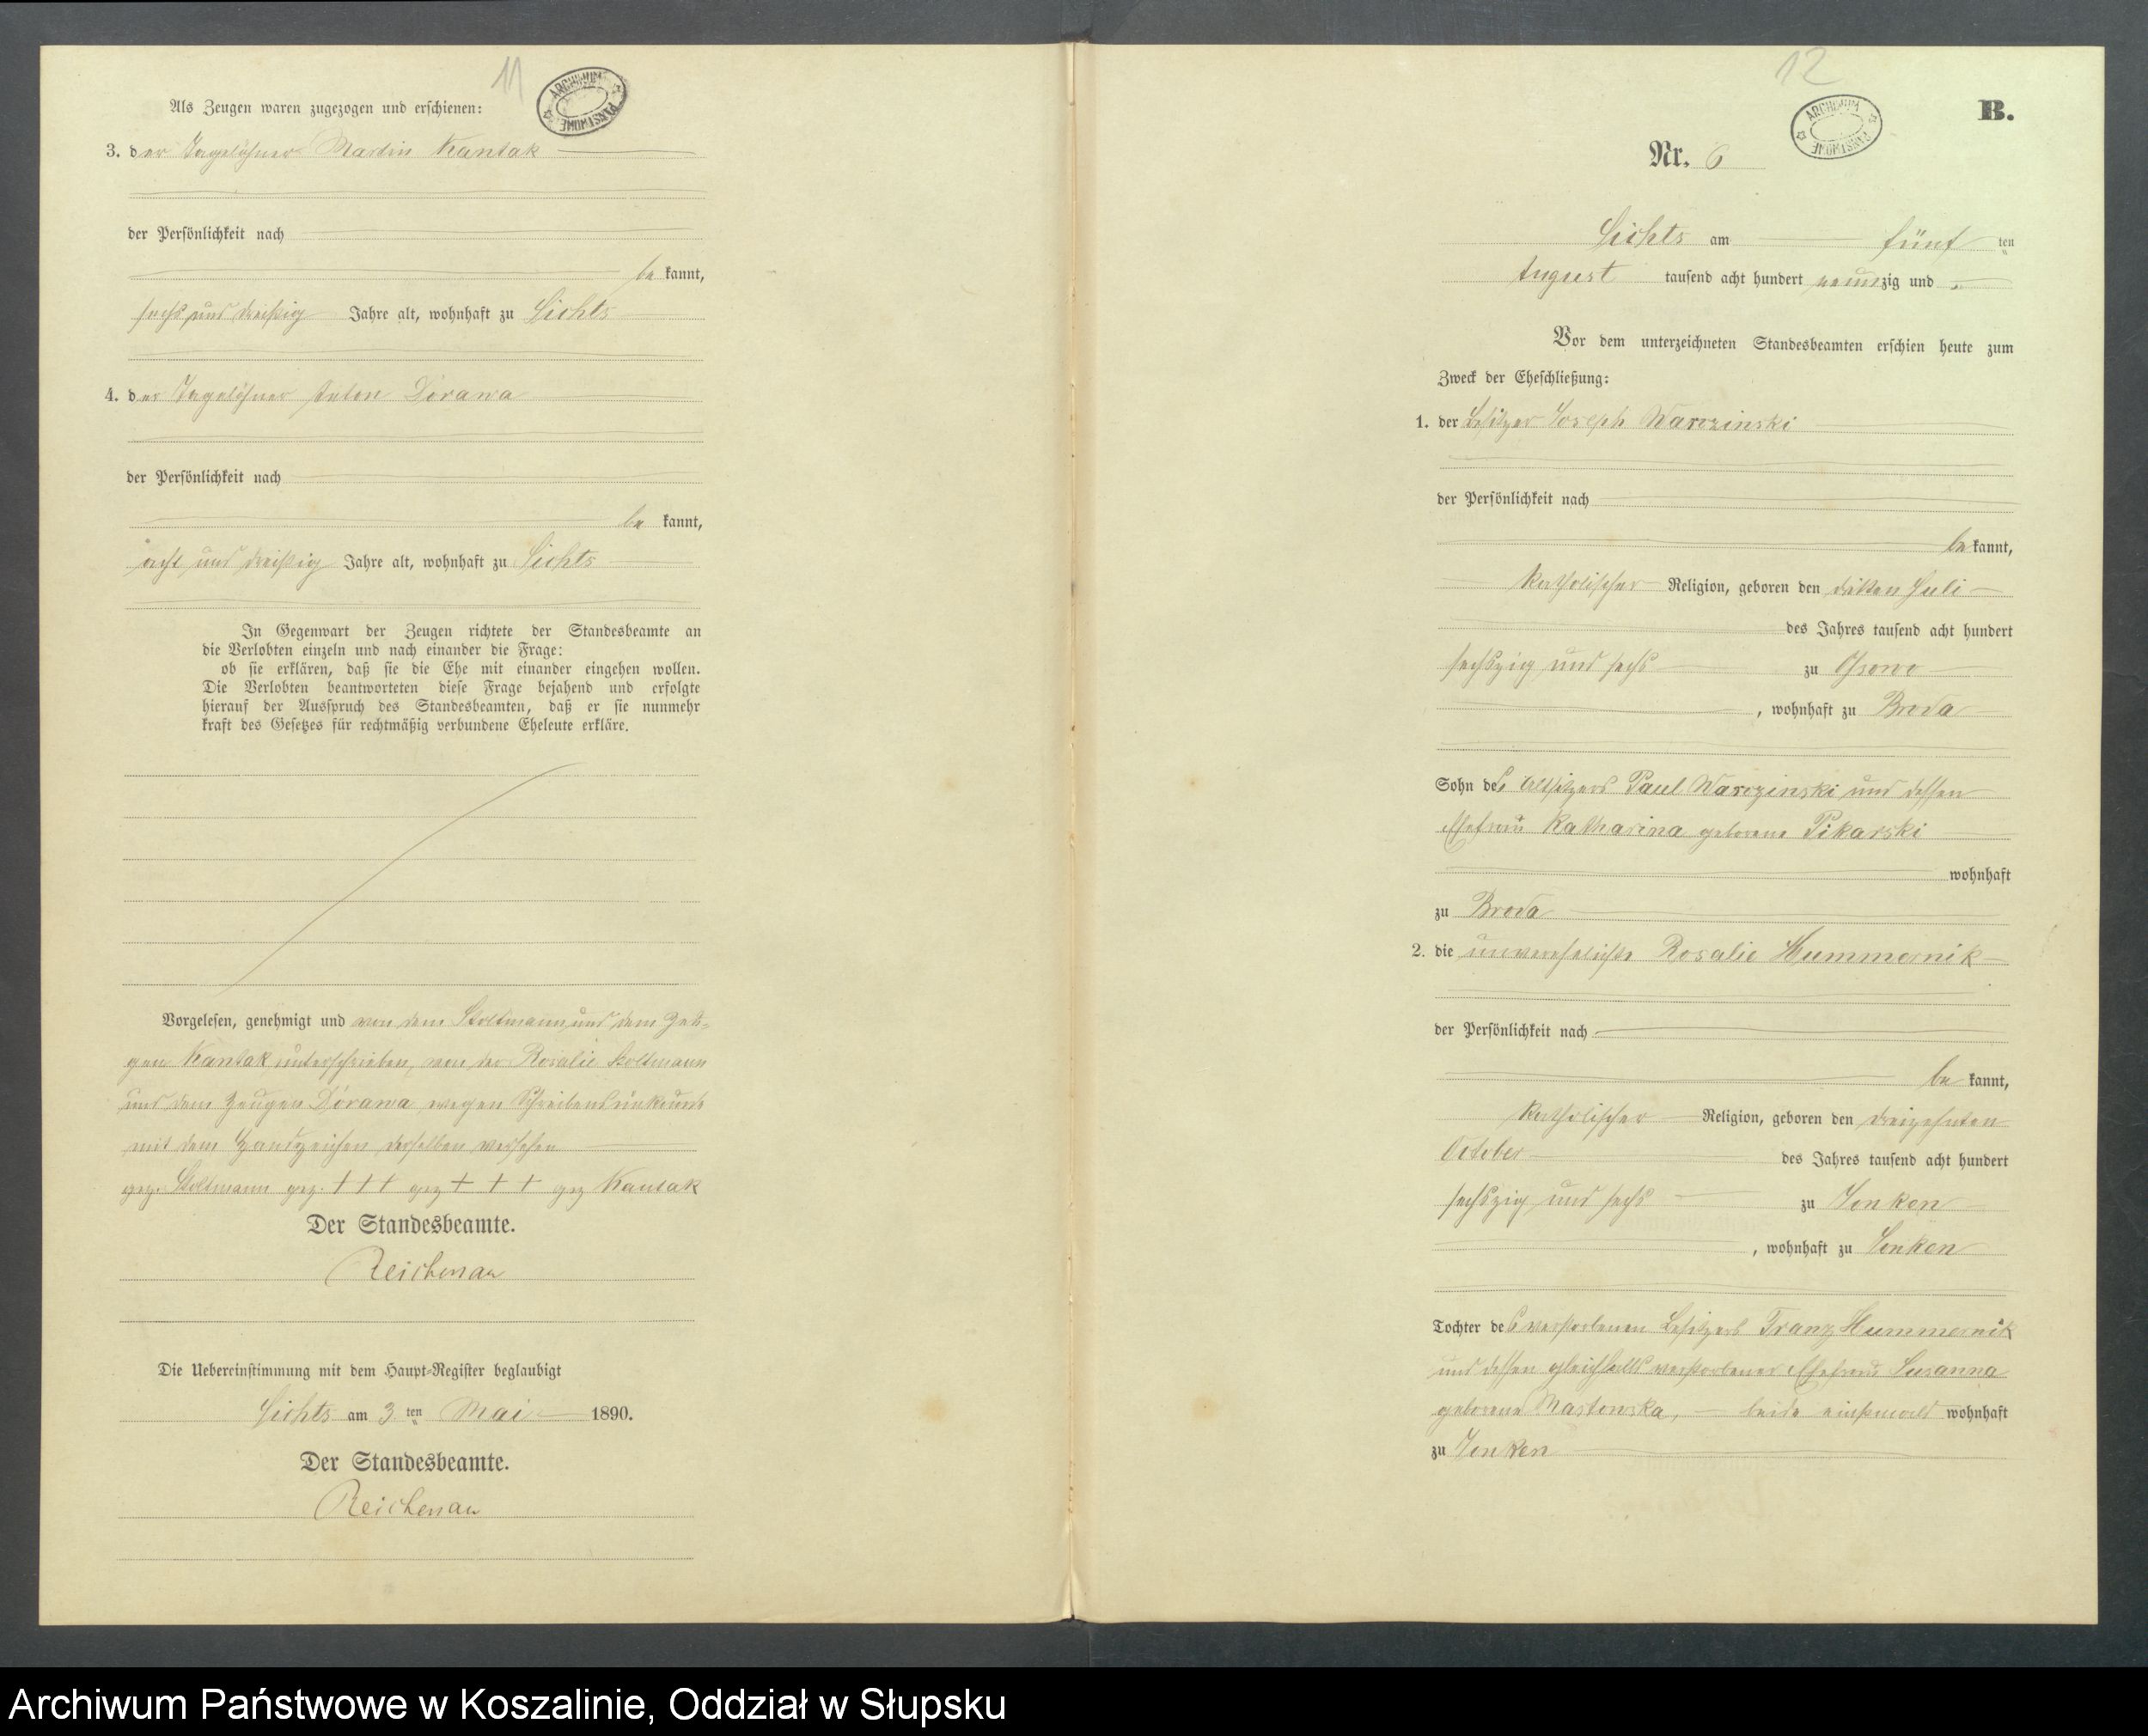 11
ARCHIWUM PAŃSTWOWE
Als Zeugen waren zugezogen und erschienen:
3. der Tagelöhner Martin Kantak
der Persönlichkeit nach
be kannt,
sechs und dreißig Jahre alt, wohnhaft zu Lichts
4. der Tagelöhner Anton Dorawa
der Persönlichkeit nach
be kannt,
acht und dreißig Jahre alt, wohnhaft zu Lichts
In Gegenwart der Zeugen richtete der Standesbeamte an
die Verlobten einzeln und nach einander die Frage:
ob sie erklären, daß sie die Ehe mit einander eingehen wollen.
Die Verlobten beantworteten diese Frage bejahend und erfolgte
hierauf der Ausspruch des Standesbeamten, daß er sie nunmehr
kraft des Gesetzes für rechtmäßig verbundene Eheleute erkläre.
Vorgelesen, genehmigt und von dem Stoltmann und dem Zeu-
gen Kantak unterschrieben, von der Rosalie Stoltmann
und dem Zeugen Dorawa wegen Schreibensunkunde
mit dem Handzeichen derselben versehen
gez. Stoltmann gez. +++ gez +++ gez Kantak
Der Standesbeamte.
Reichenau
Die Uebereinstimmung mit dem Haupt-Register beglaubigt
Lichts am 3 ten Mai 1890.
Der Standesbeamte.
Reichenau
12
ARCHIWUM PAŃSTWOWE
B.
Nr. 6
Lichts am fünf ten
August tausend acht hundert neunzig und
Vor dem unterzeichneten Standesbeamten erschien heute zum
Zweck der Eheschließung:
1. der Besitzer Joseph Warczinski
der Persönlichkeit nach
be kannt,
katholischer Religion, geboren den dritten Juli
des Jahres tausend acht hundert
sechszig und sechs zu Ossowo
, wohnhaft zu Broda
Sohn des Altsitzers Paul Warczinski und dessen
Ehefrau Katharina geborene Pikarski
wohnhaft
zu Broda
2. die unverehelichte Rosalie Hummernik
der Persönlichkeit nach
be kannt,
katholischer Religion, geboren den dreizehnten
October des Jahres tausend acht hundert
sechszig und sechs zu Sonken
, wohnhaft zu Sonken
Tochter des verstorbenen Besitzers Franz Hummernik
und dessen gleichfalls verstorbener Ehefrau Susanna
geborene Mastowska, beide wohnhaft
zu Sonken
Archiwum Państwowe w Koszalinie, Oddział w Słupsku